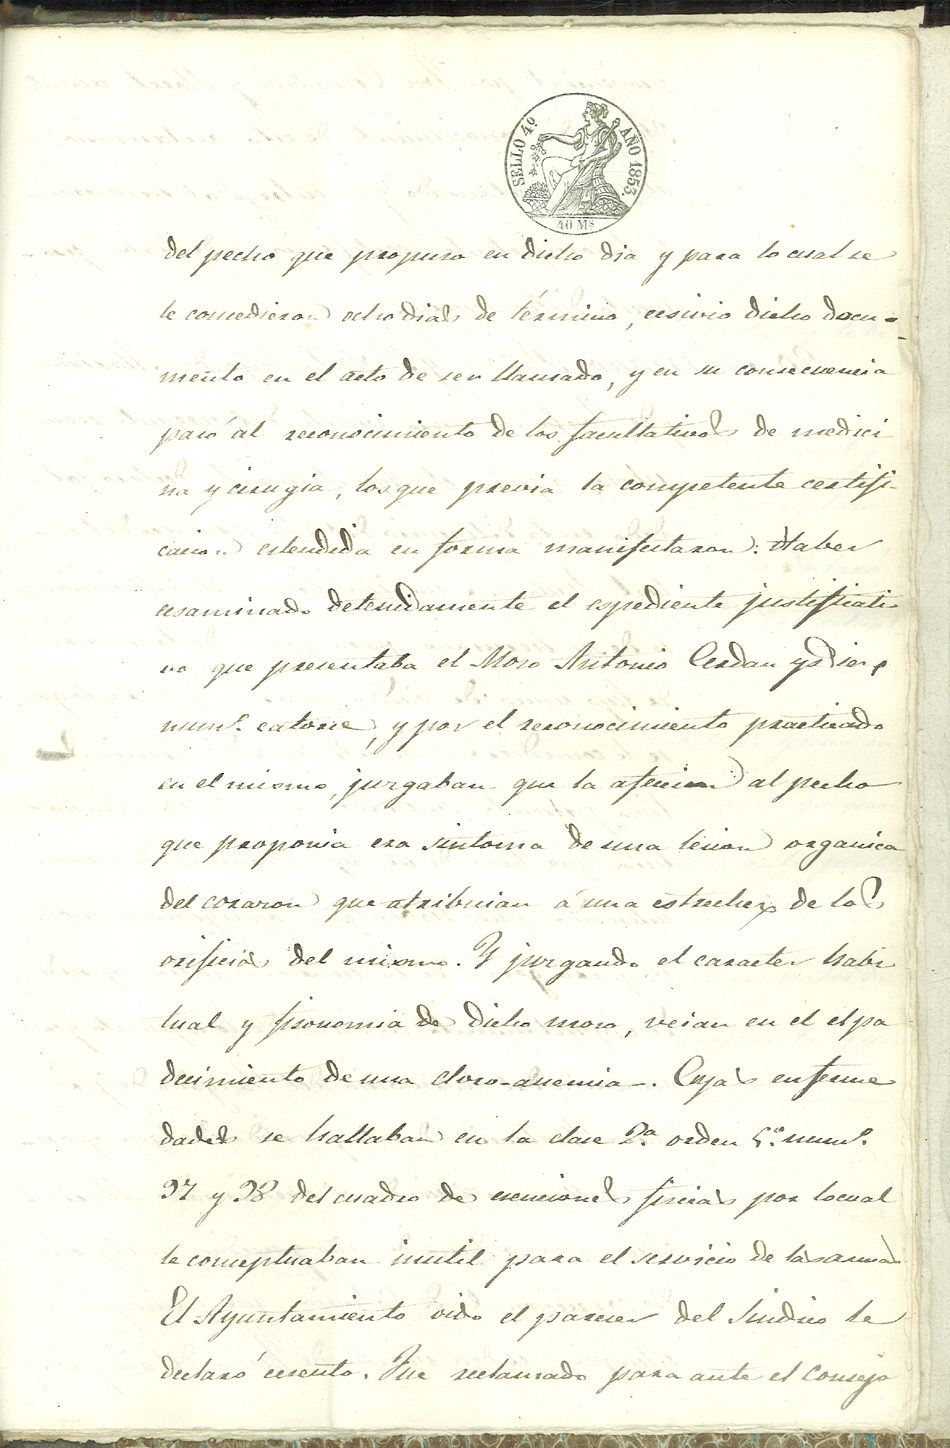 SELLO 4º AÑO 1855.
40 Ms
del pecho que propuso en dicho dia y para lo cual se
le concedieron ocho dias de término, ecsivio dicho docu-
mento en el acto de ser llamado, y en su consecuencia
pasó al reconocimiento de los facultativos de medici
na y cirugia, los que previa la competente certifi-
cacion estendida en forma manifestaron: Haber
ecsaminado detenidamente el espediente justificati
vo que presentaba el Moso Antonio Cerdan y
numº. catorce, y por el reconocimiento practicado
en el mismo, jurgaban que la afeccion al pecho
que proponia era sintoma de una lecion organica
del corazon que atribuian á una estrechez de los
orificios del mismo. Y jurgando el caracter habi
tual y fisonomia de dicho moso, veian en el el pa
decimiento de una cloro-anemia-. Cuyas enferme
dades se hallaban en la clase 2ª. orden 5º. numº.
97 y 98 del cuadro de exenciones fisicas por lo cual
le conceptuaban inutil para el servicio de las armas
El Ayuntamiento oido el parecer del Sindico le
declaró ecsento. Fue reclamado para ante el Consejo